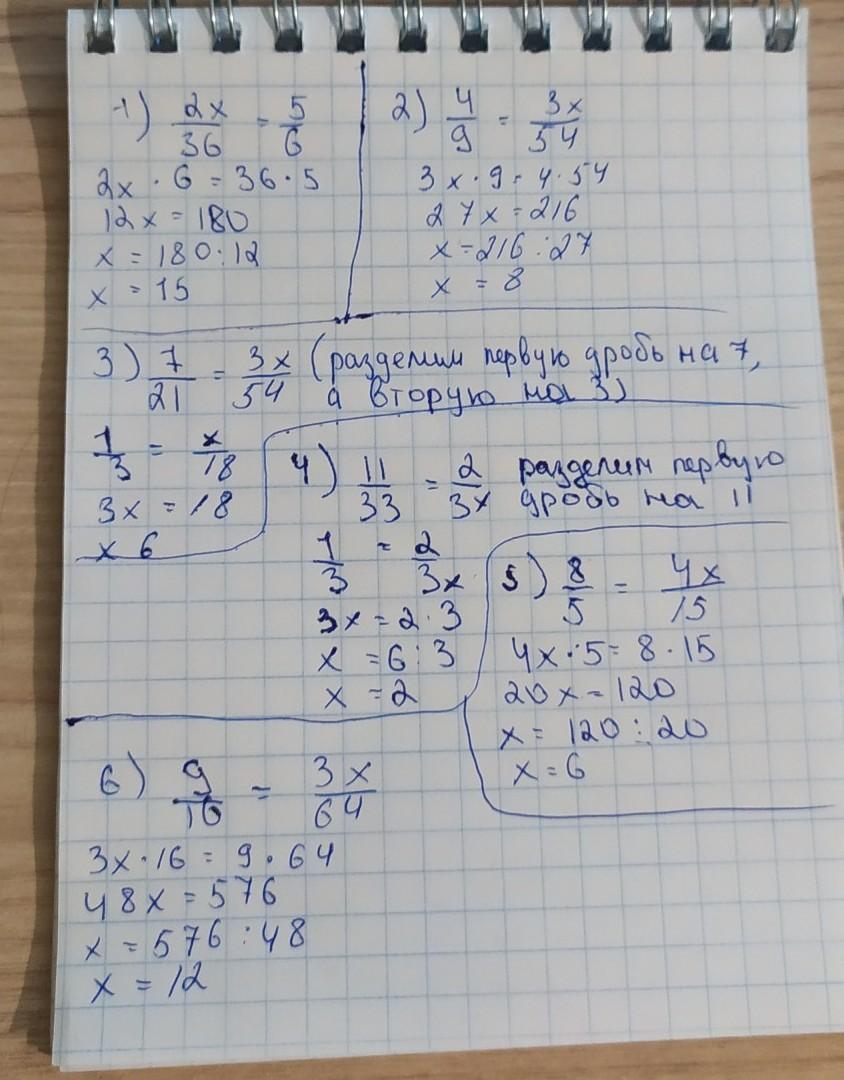 1) 2x/36 = 5/6
2x · 6 = 36 · 5
12x = 180
x = 180 : 12
x = 15
2) 4/9 = 3x/54
3x · 9 = 4 · 54
27x = 216
x = 216 : 27
x = 8
3) 7/21 = 3x/54 (разделим первую дробь на 7,
а вторую на 3)
1/3 = x/18
3x = 18
x 6
4) 11/33 = 2/3x разделим первую
дробь на 11
1/3 = 2/3x
3x = 2 · 3
x = 6 : 3
x = 2
5) 8/5 = 4x/15
4x · 5 = 8 · 15
20x = 120
x = 120 : 20
x = 6
6) 9/16 = 3x/64
3x · 16 = 9 · 64
48x = 576
x = 576 : 48
x = 12